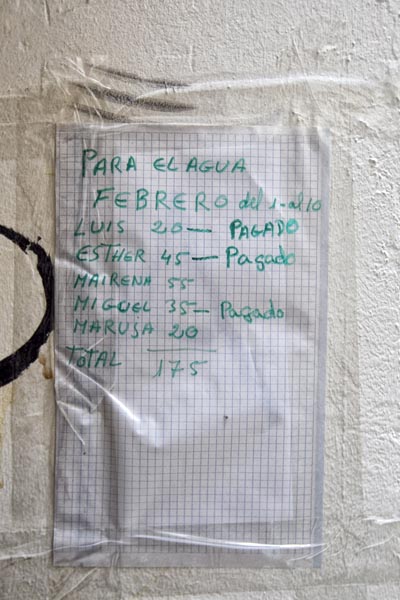 PARA EL AGUA
FEBRERO del 1-al 10
LUIS 20 — PAGADO
ESTHER 45 — Pagado
MAIRENA 55
MIGUEL 35 — Pagado
MARUSA 20
TOTAL 175